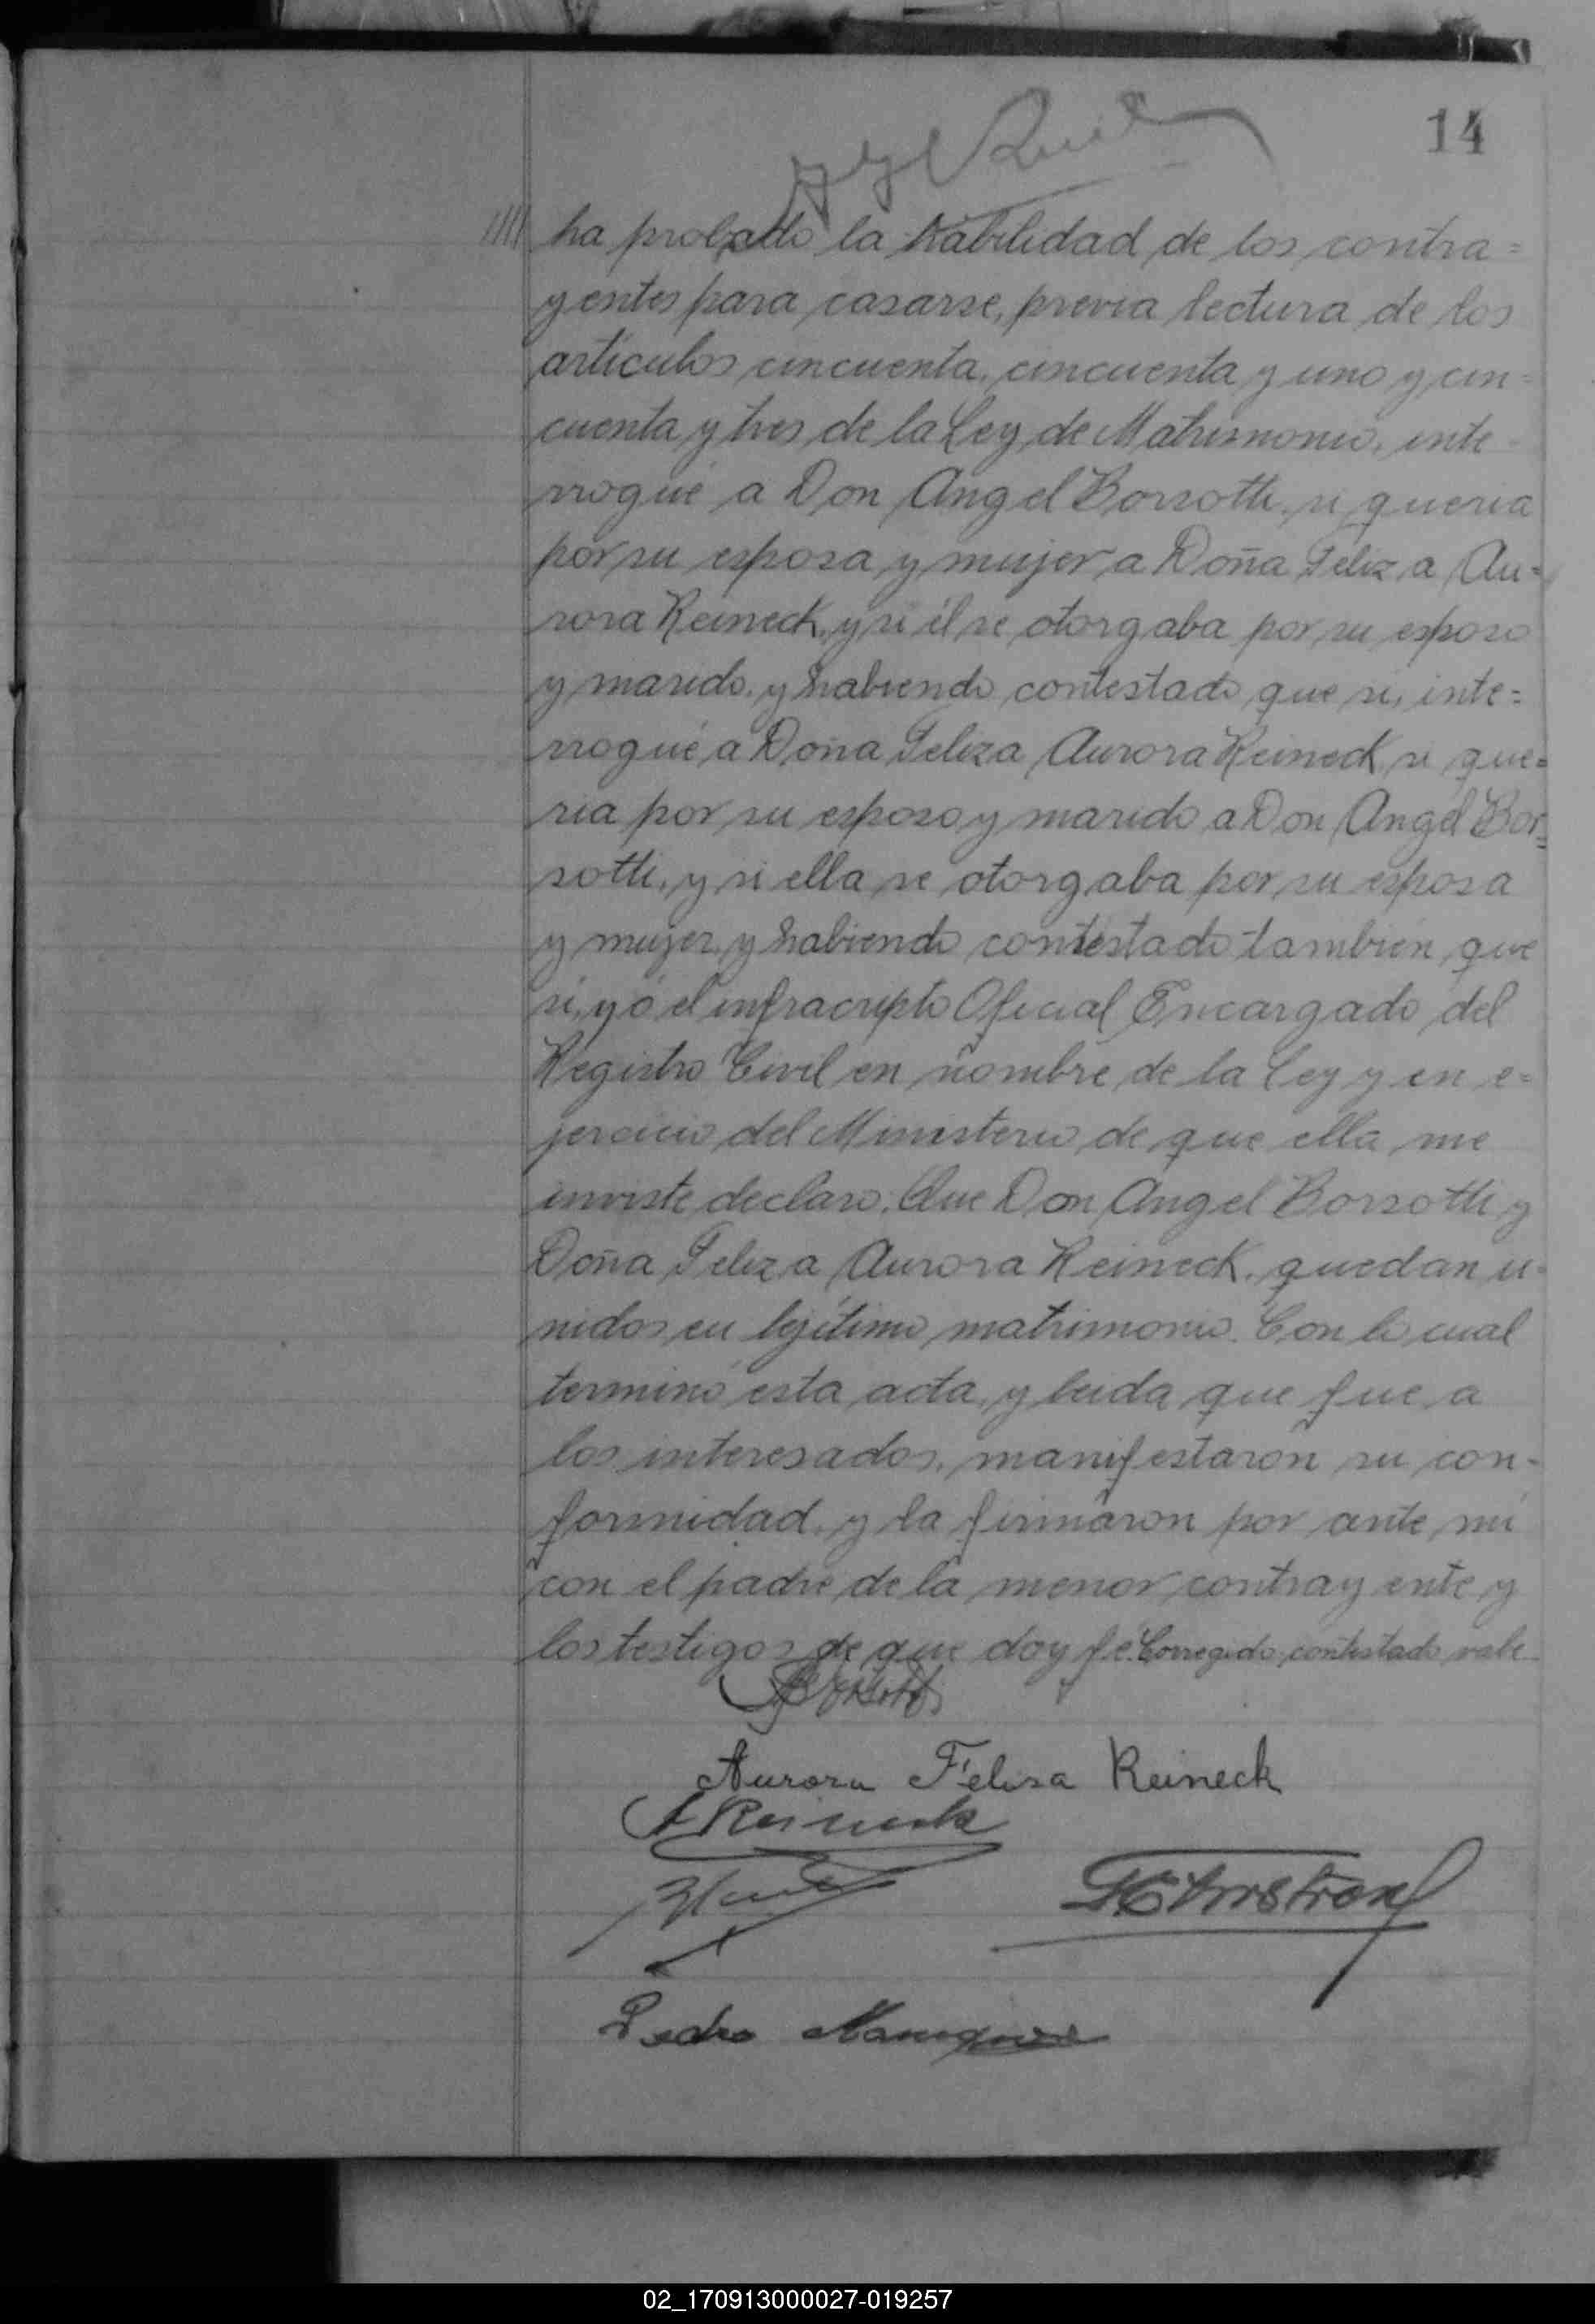 14
//// ha probado la habilidad de los contra=
yentes para casarse, previa lectura de los
artículos cincuenta, cincuenta y uno y cin=
cuenta y tres de la Ley de Matrimonio, inte-
rrogué a Don Angel Borsotti, si queria
por su esposa y mujer a Doña Feliza Au=
rora Reineck, y si él se otorgaba por su esposo
y marido, y habiendo contestado que si, inte=
rrogué a Doña Feliza Aurora Reineck, si que=
ria por su esposo y marido a Don Angel Bor=
sotti, y si ella se otorgaba por su esposa
y mujer, y habiendo contestado tambien que
si, yo el infracripto Oficial Encargado del
Registro Civil en nombre de la Ley y en e=
jercicio del Ministerio de que ella me
inviste declaro: Que Don Angel Borsotti y
Doña Feliza Aurora Reineck, quedan u-
nidos en lejítimo matrimonio. Con lo cual
terminó esta acta, y leida que fue a
los interesados, manifestaron su con-
formidad, y la firmaron por ante mi
con el padre de la menor contrayente y
los testigos de que doy fé. Corregido, contestado, vale
Aurora Felisa Reineck
A Reineck
Pedro
02_170913000027-019257